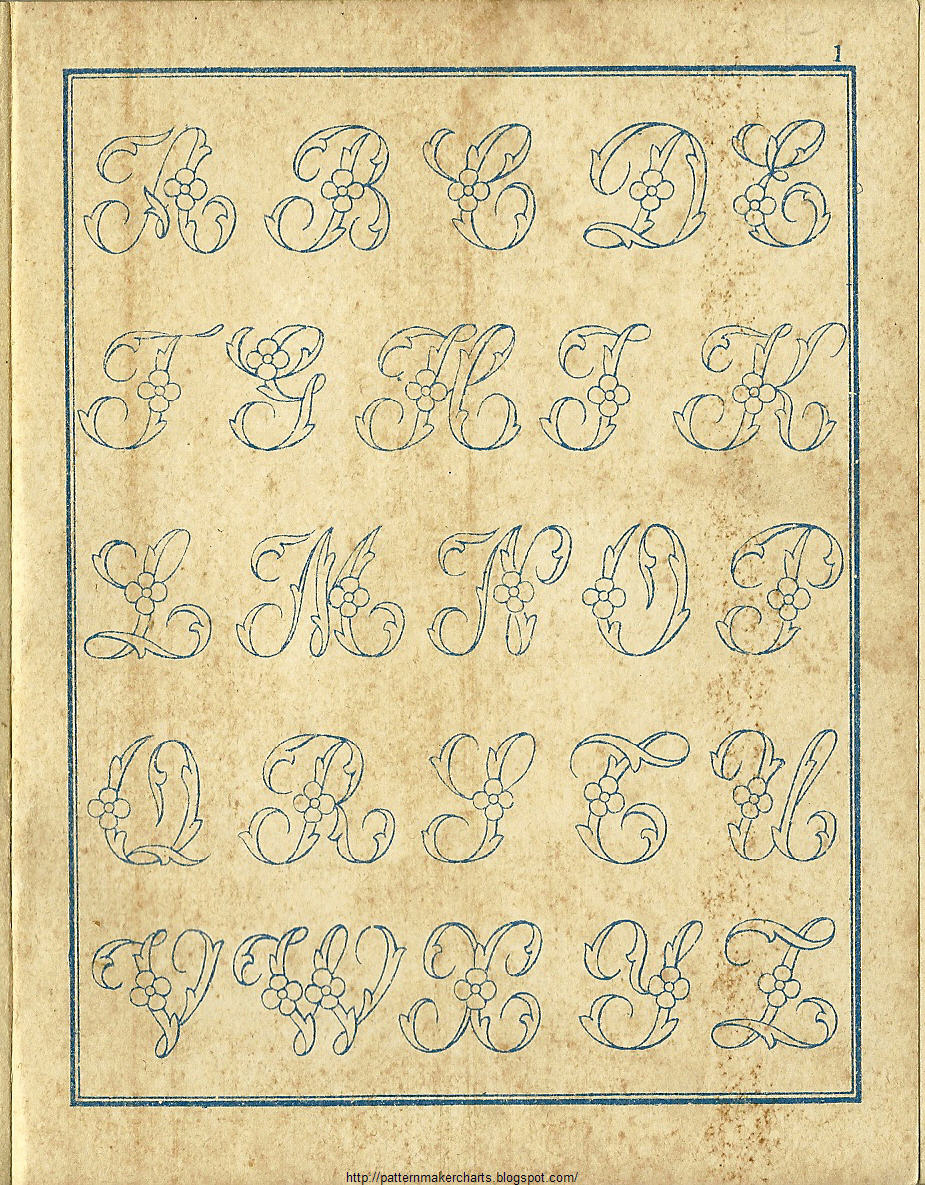 1
A B C D E
F G H I K
L M N O P
Q R S T U
V W X Y Z
http://patternmakercharts.blogspot.com/